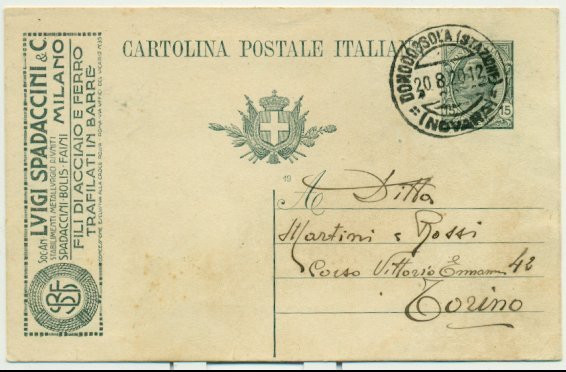 CARTOLINA POSTALE ITALIANA
DOMODOSSOLA (STAZIONE)
20.8.20-12
(NOVARA)
15
Soc. An. LVIGI SPADACCINI & C.
STABILIMENTI METALLURGICI RIUNITI
SPADACCINI-BOLIS-FAINI MILANO
FILI DI ACCIAIO E FERRO
TRAFILATI IN BARRE
19
A Ditta
Martini e Rossi
Corso Vittorio Emman 42
Torino